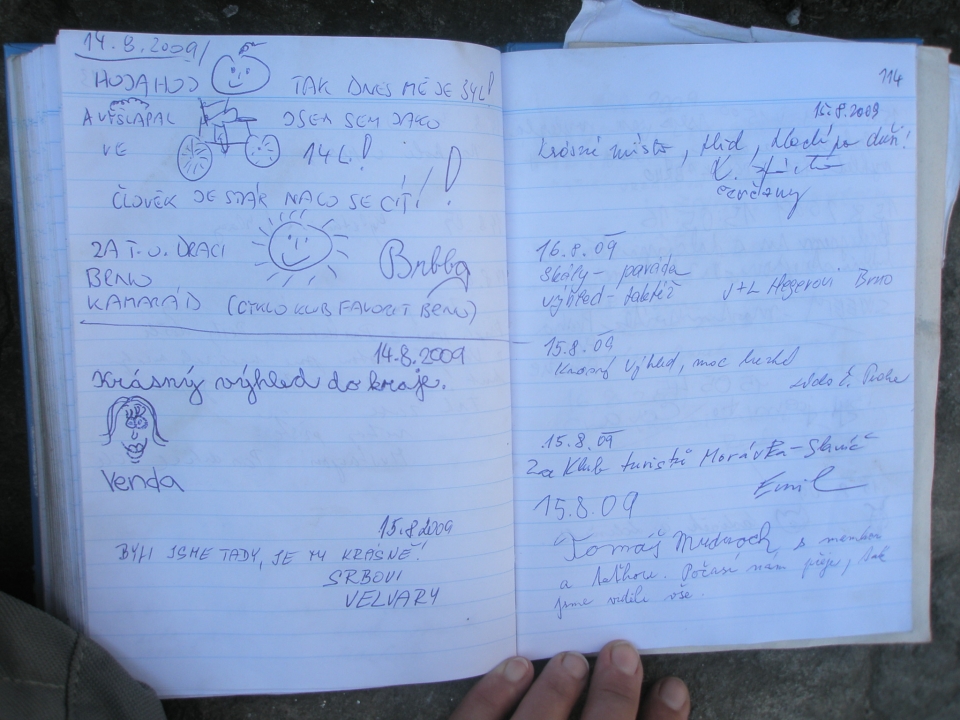 14.8.2009/
HOJAHOJ TAK DNES MĚ JE BYL!
A VYŠLAPAL JSEM SEM JAKO
VE 14 L.!
ČLOVĚK JE STÁR NA CO SE CÍTÍ!
ZA T.O. DRACI
BRNO
KAMARÁD (CYKLO KLUB FAVORIT BRNO)
14.8.2009
Krásný výhled do kraje.
Venda
15.8.2009
BYLI JSME TADY, JE TU KRÁSNĚ!
SRBOVI
VELVARY
114
15.8.2009
Krásné místo, klid, duši!
16.8.09
Skály - paráda
výhled - J+L Hegerovi Brno
15.8.09
Krásný výhled, moc hezké
Praha
15.8.09
Za Klub turistů Morávka -
Emil
15.8.09
Tomáš s mamkou
a taťkou. Počasí nám přeje, tak
jsme viděli vše.